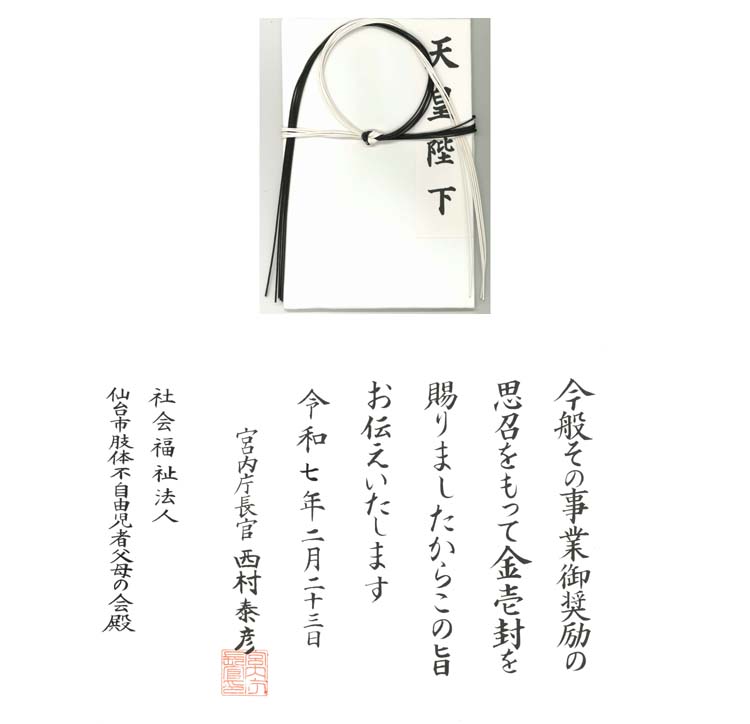 天皇陛下
今般その事業御奨励の
思召をもって金壱封を
賜りましたからこの旨
お伝えいたします
令和七年二月二十三日
宮内庁長官 西村泰彦
社会福祉法人
仙台市肢体不自由児者父母の会殿